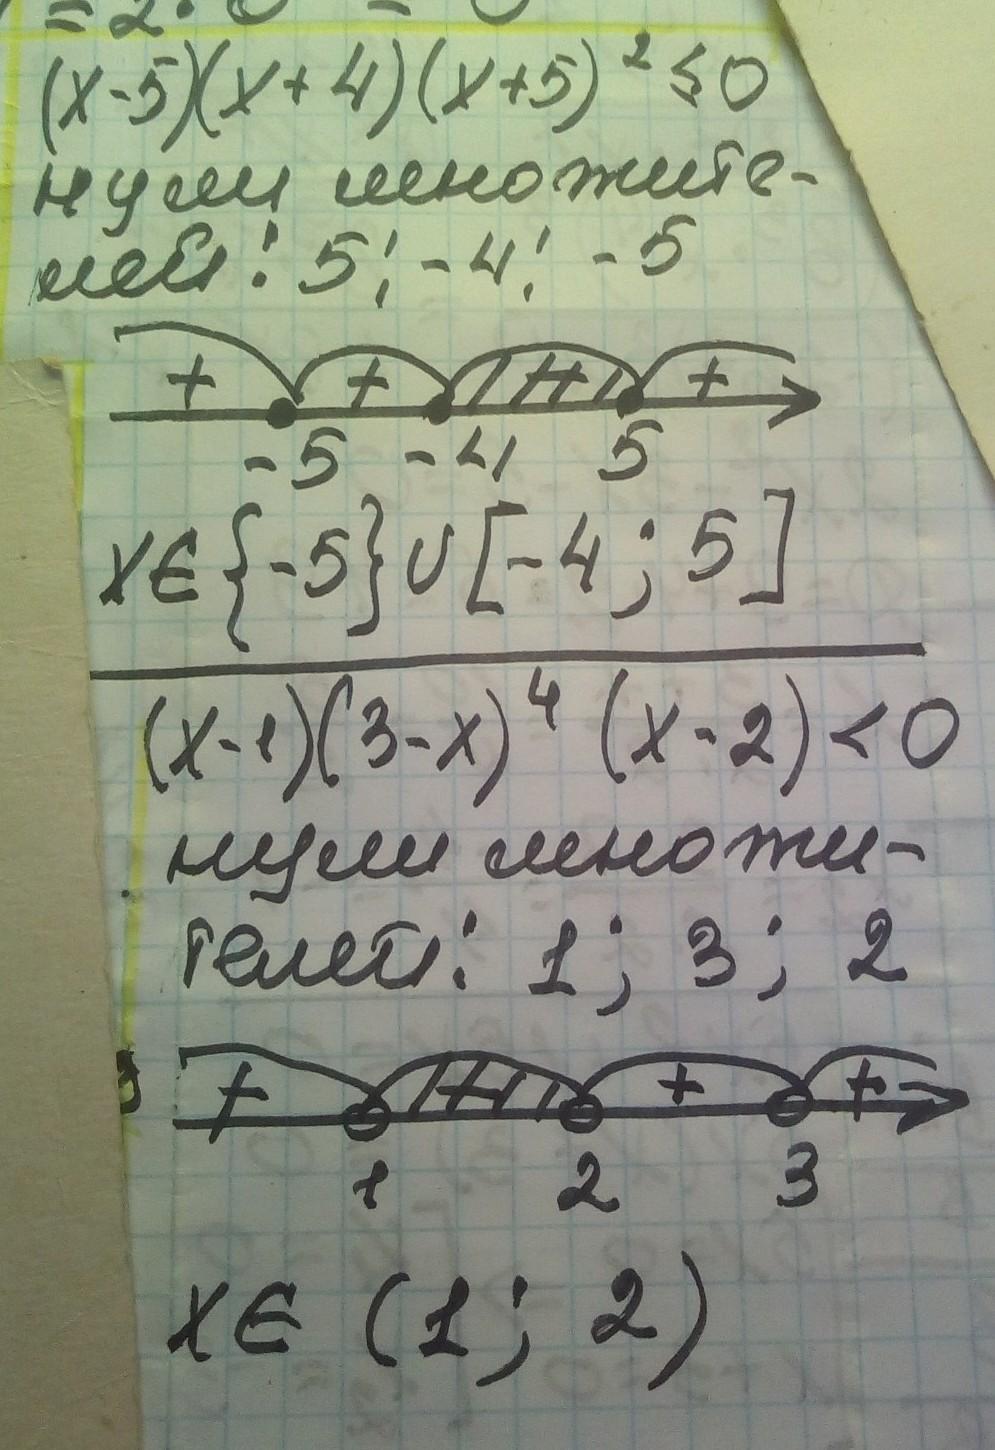 = 2 · 0 = 0
(x-5)(x+4)(x+5)² ≤ 0
нули множите-
лей: 5; -4; -5
+ + - +
-5 -4 5
x∈{-5}∪[-4; 5]
(x-1)(3-x)⁴ (x-2) < 0
нули множи-
телей: 1; 3; 2
+ - + +
1 2 3
x∈ (1; 2)